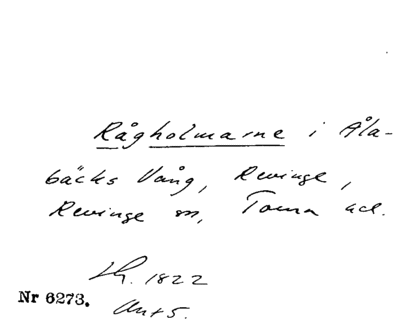 Rågholmarne i Åla-
bäcks Vång, Revinge,
Revinge sn, Torna hd.
Lh. 1822
Nr 6273.